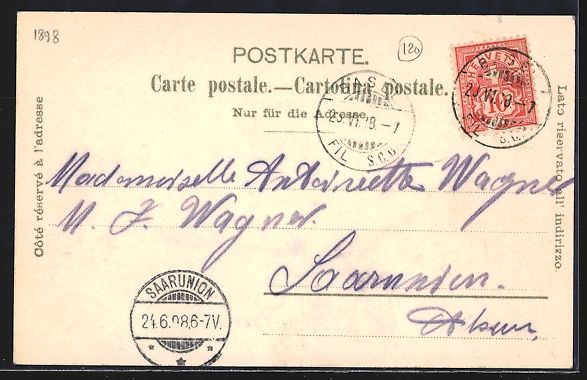 1898
120
POSTKARTE.
Carte postale.—Cartolina postale.
Nur für die Adresse.
Côté réservé à l'adresse
Lato riservato all' indirizzo.
HELVETIA
10
BAS
23.VI.98.-7
FIL S.C.B
23.VI.9 -7
S.C.
Mademoiselle Antoinette Wagner
M. J. Wagner.
Saarunion.
SAARUNION
24.6.98.6-7V.